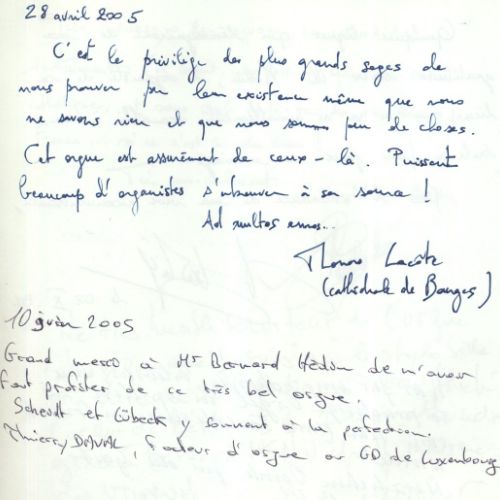 28 avril 2005
C'est le privilège des plus grands sages de
nous prouver par leur existence même que nous
ne savons rien et que nous sommes peu de choses.
Cet orgue est assurément de ceux-là. Puissent
beaucoup d'organistes s'abreuver à sa source !
Ad multos annos...
Lacôte
(cathédrale de Bourges)
10 juin 2005
Grand merci à Mr Bernard Hédin de m'avoir
fait profiter de ce très bel orgue.
Scheidt et Lübeck y sonnent à la perfection.
Thierry , facteur d'orgue au GD de Luxembourg